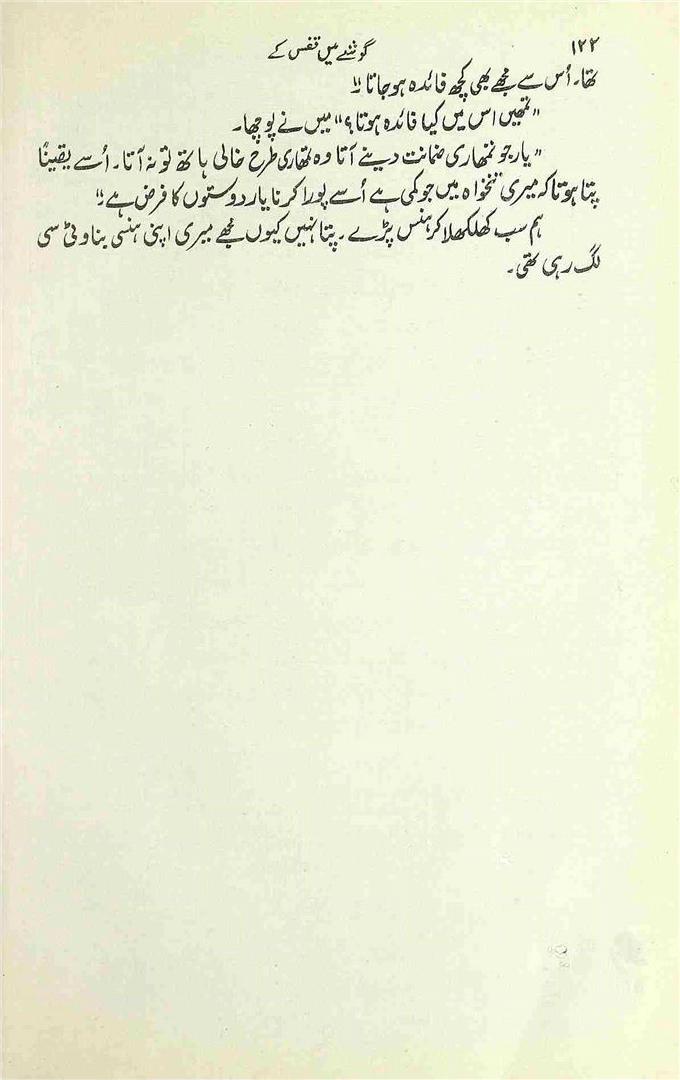 ۱۲۲ گوشے میں قفس کے
تھا۔ اُس سے مجھے بھی کچھ فائدہ ہوجاتا۔"
"تمھیں اس میں کیا فائدہ ہوتا؟" میں نے پوچھا۔
"یار جو تمھاری ضمانت دینے آتا وہ تمھاری طرح خالی ہاتھ تو نہ آتا۔ اُسے یقیناً
پتا ہوتا کہ میری تنخواہ میں جو کمی ہے اُسے پورا کرنا یار دوستوں کا فرض ہے۔"
ہم سب کھلکھلا کر ہنس پڑے۔ پتا نہیں کیوں مجھے میری اپنی ہنسی بناوٹی سی
لگ رہی تھی۔